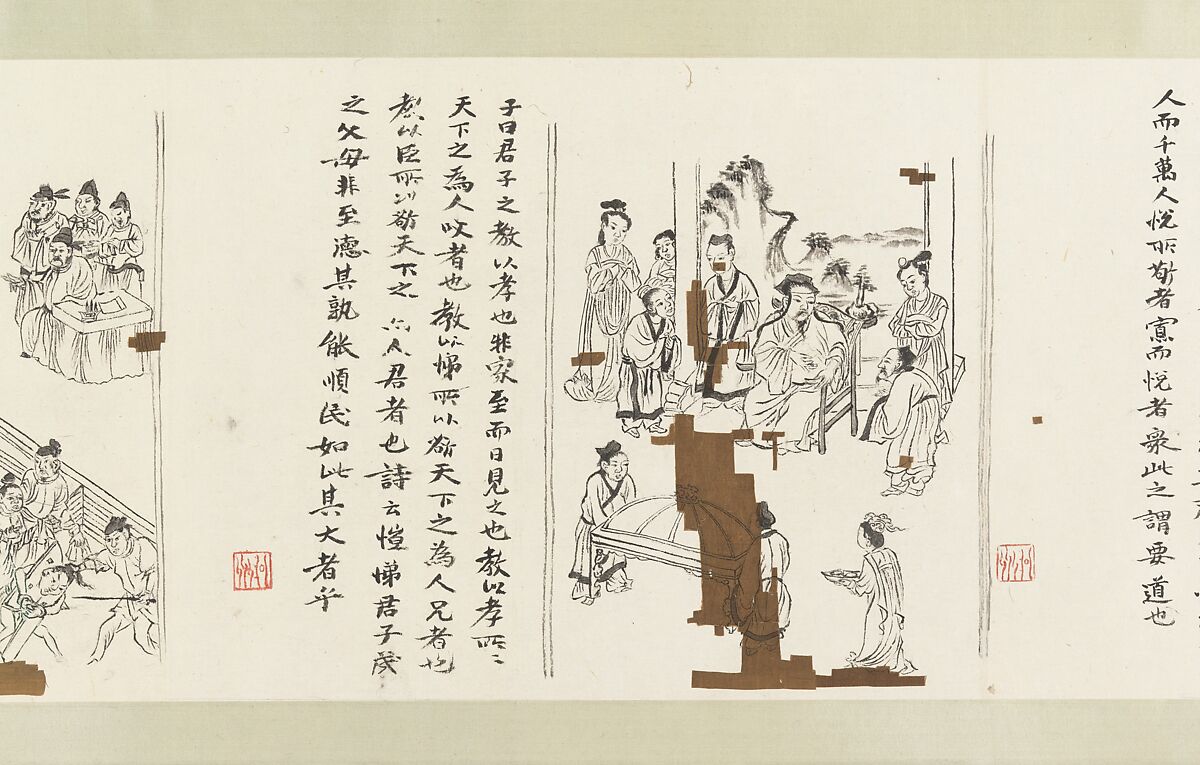 人而千萬人悅所敬者寡而悅者衆此之謂要道也
子曰君子之教以孝也非家至而日見之也教以孝所
天下之為人父者也教以悌所以敬天下之為人兄者也
教以臣所以敬天下之人君者也詩云愷悌君子
之父母非至德其孰能順民如此其大者乎